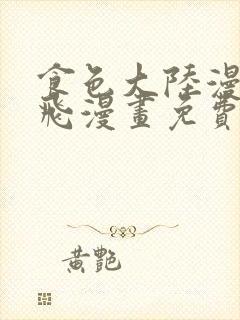 食色大陸漫
飛漫畫免費
黃艷